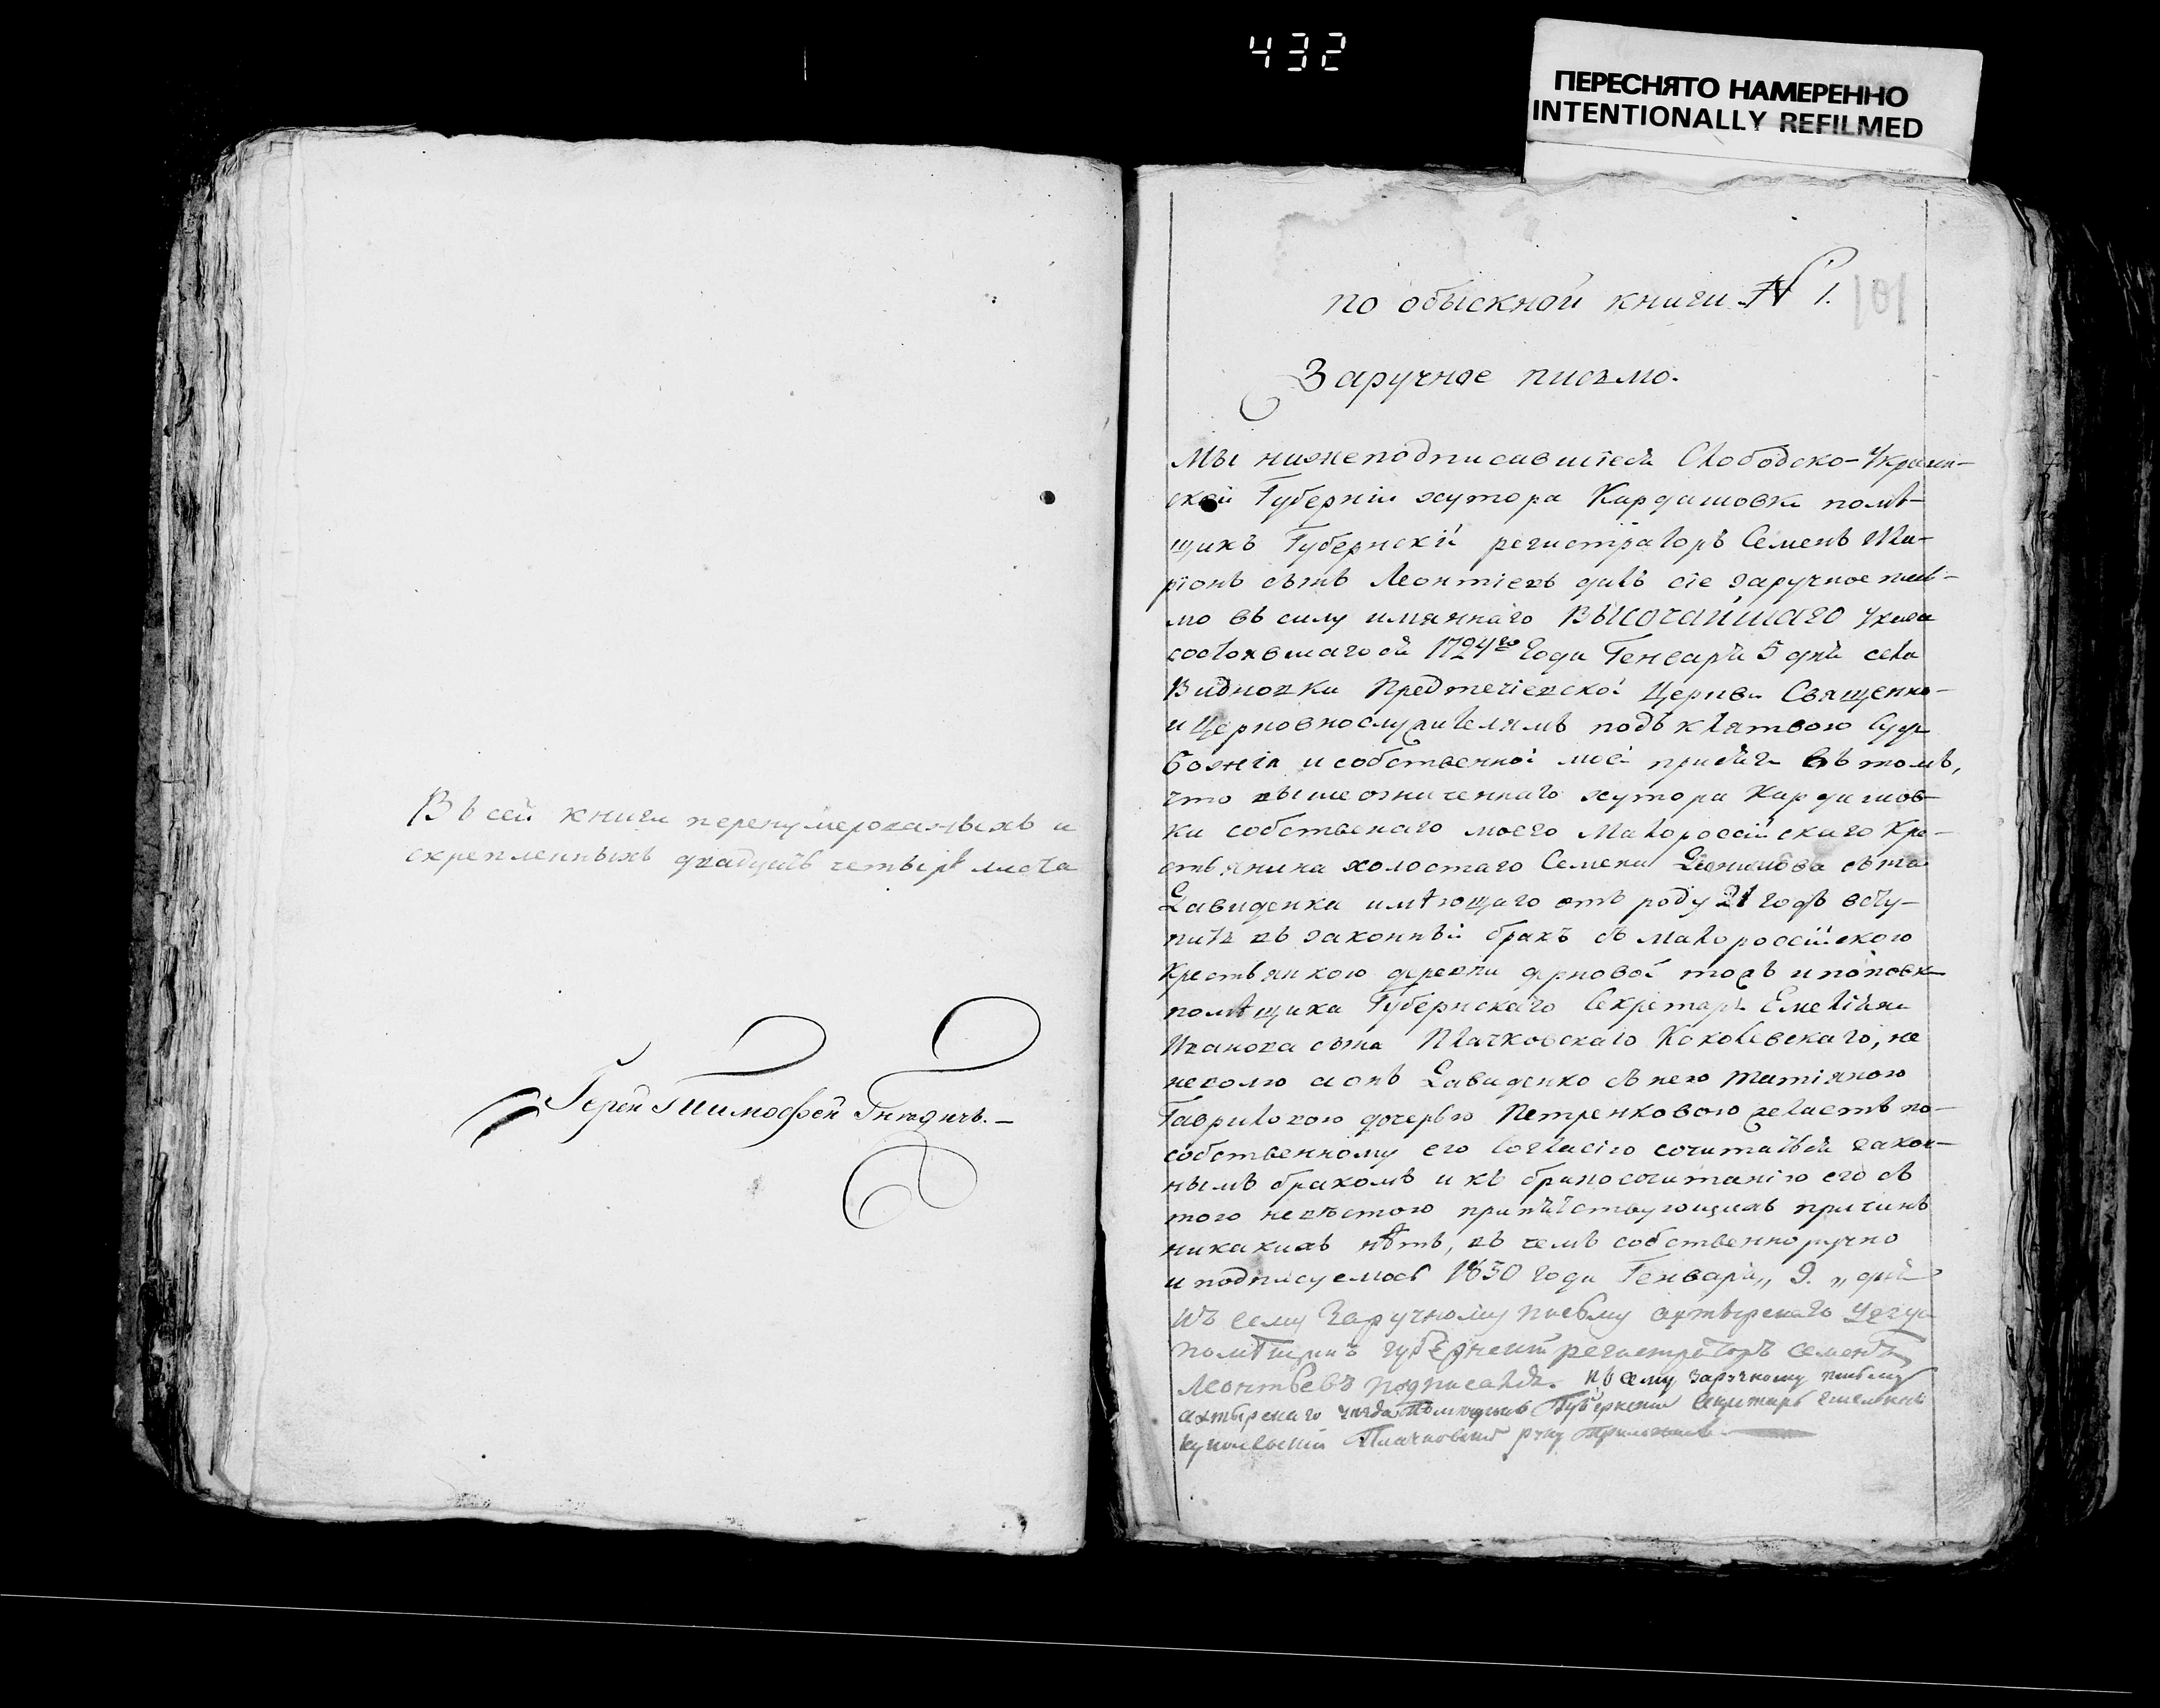 432
ПЕРЕСНЯТО НАМЕРЕННО
INTENTIONALLY REFILMED
Въ сей книги перенумерованыхъ и
скрепленныхъ двадцать четыре листа
Іерей Тимофей Гнѣдичь.
по обыскной книги № 1.
101
Заручное письмо.
Мы нижеподписавшіеся Слободско-Украин-
ской Губерніи хутора Кардашовки помѣ-
щикъ Губернскій регистраторъ Семенъ
сынъ Леонтіевъ далъ сіе заручное пись-
мо въ силу имяннаго ВЫСОЧАЙШАГО указа
состоявшагося 1724го года Генваря 5 дня села
Видновки Предтечіевской Церкви Священно-
и Церковнослужителямъ подъ клятвою Суда
божія и собственной моей присяги въ томъ,
что вышеозначеннаго хутора Кардашов-
ки собственаго моего Малороссійскаго Кре-
стьянина холостаго Семена сына
Давиденка имѣющаго отъ роду 21 годъ всту-
пить въ законный бракъ съ Малороссійскою
Крестьянкою деревни дерновой тожъ и поповк-
помѣщика Губернскаго Секретаря Емеліяна
Иванова сына Плачковскаго Коковевскаго, не
неволю а онъ Давиденко съ нею Татіяною
Гавриловою дочерью Петренковою желаетъ по-
собственному его согласію сочитаться закон-
нымъ бракомъ и къ бракосочитанію его съ
тою невѣстою препятствующихъ причинъ
никакихъ нѣтъ, въ чемъ собственноручно
и подписуемось 1830 года Генваря „ 9. „ дня
Къ сему Заручному письму ахтырскаго уезда
помѣщикъ губернский регистраторъ Семенъ
Леонтьевъ подписался. Къ сему заручному письму
ахтырскаго уезда Помещикъ Губернский Секретарь Емельянъ
Плачковский руку приложилъ